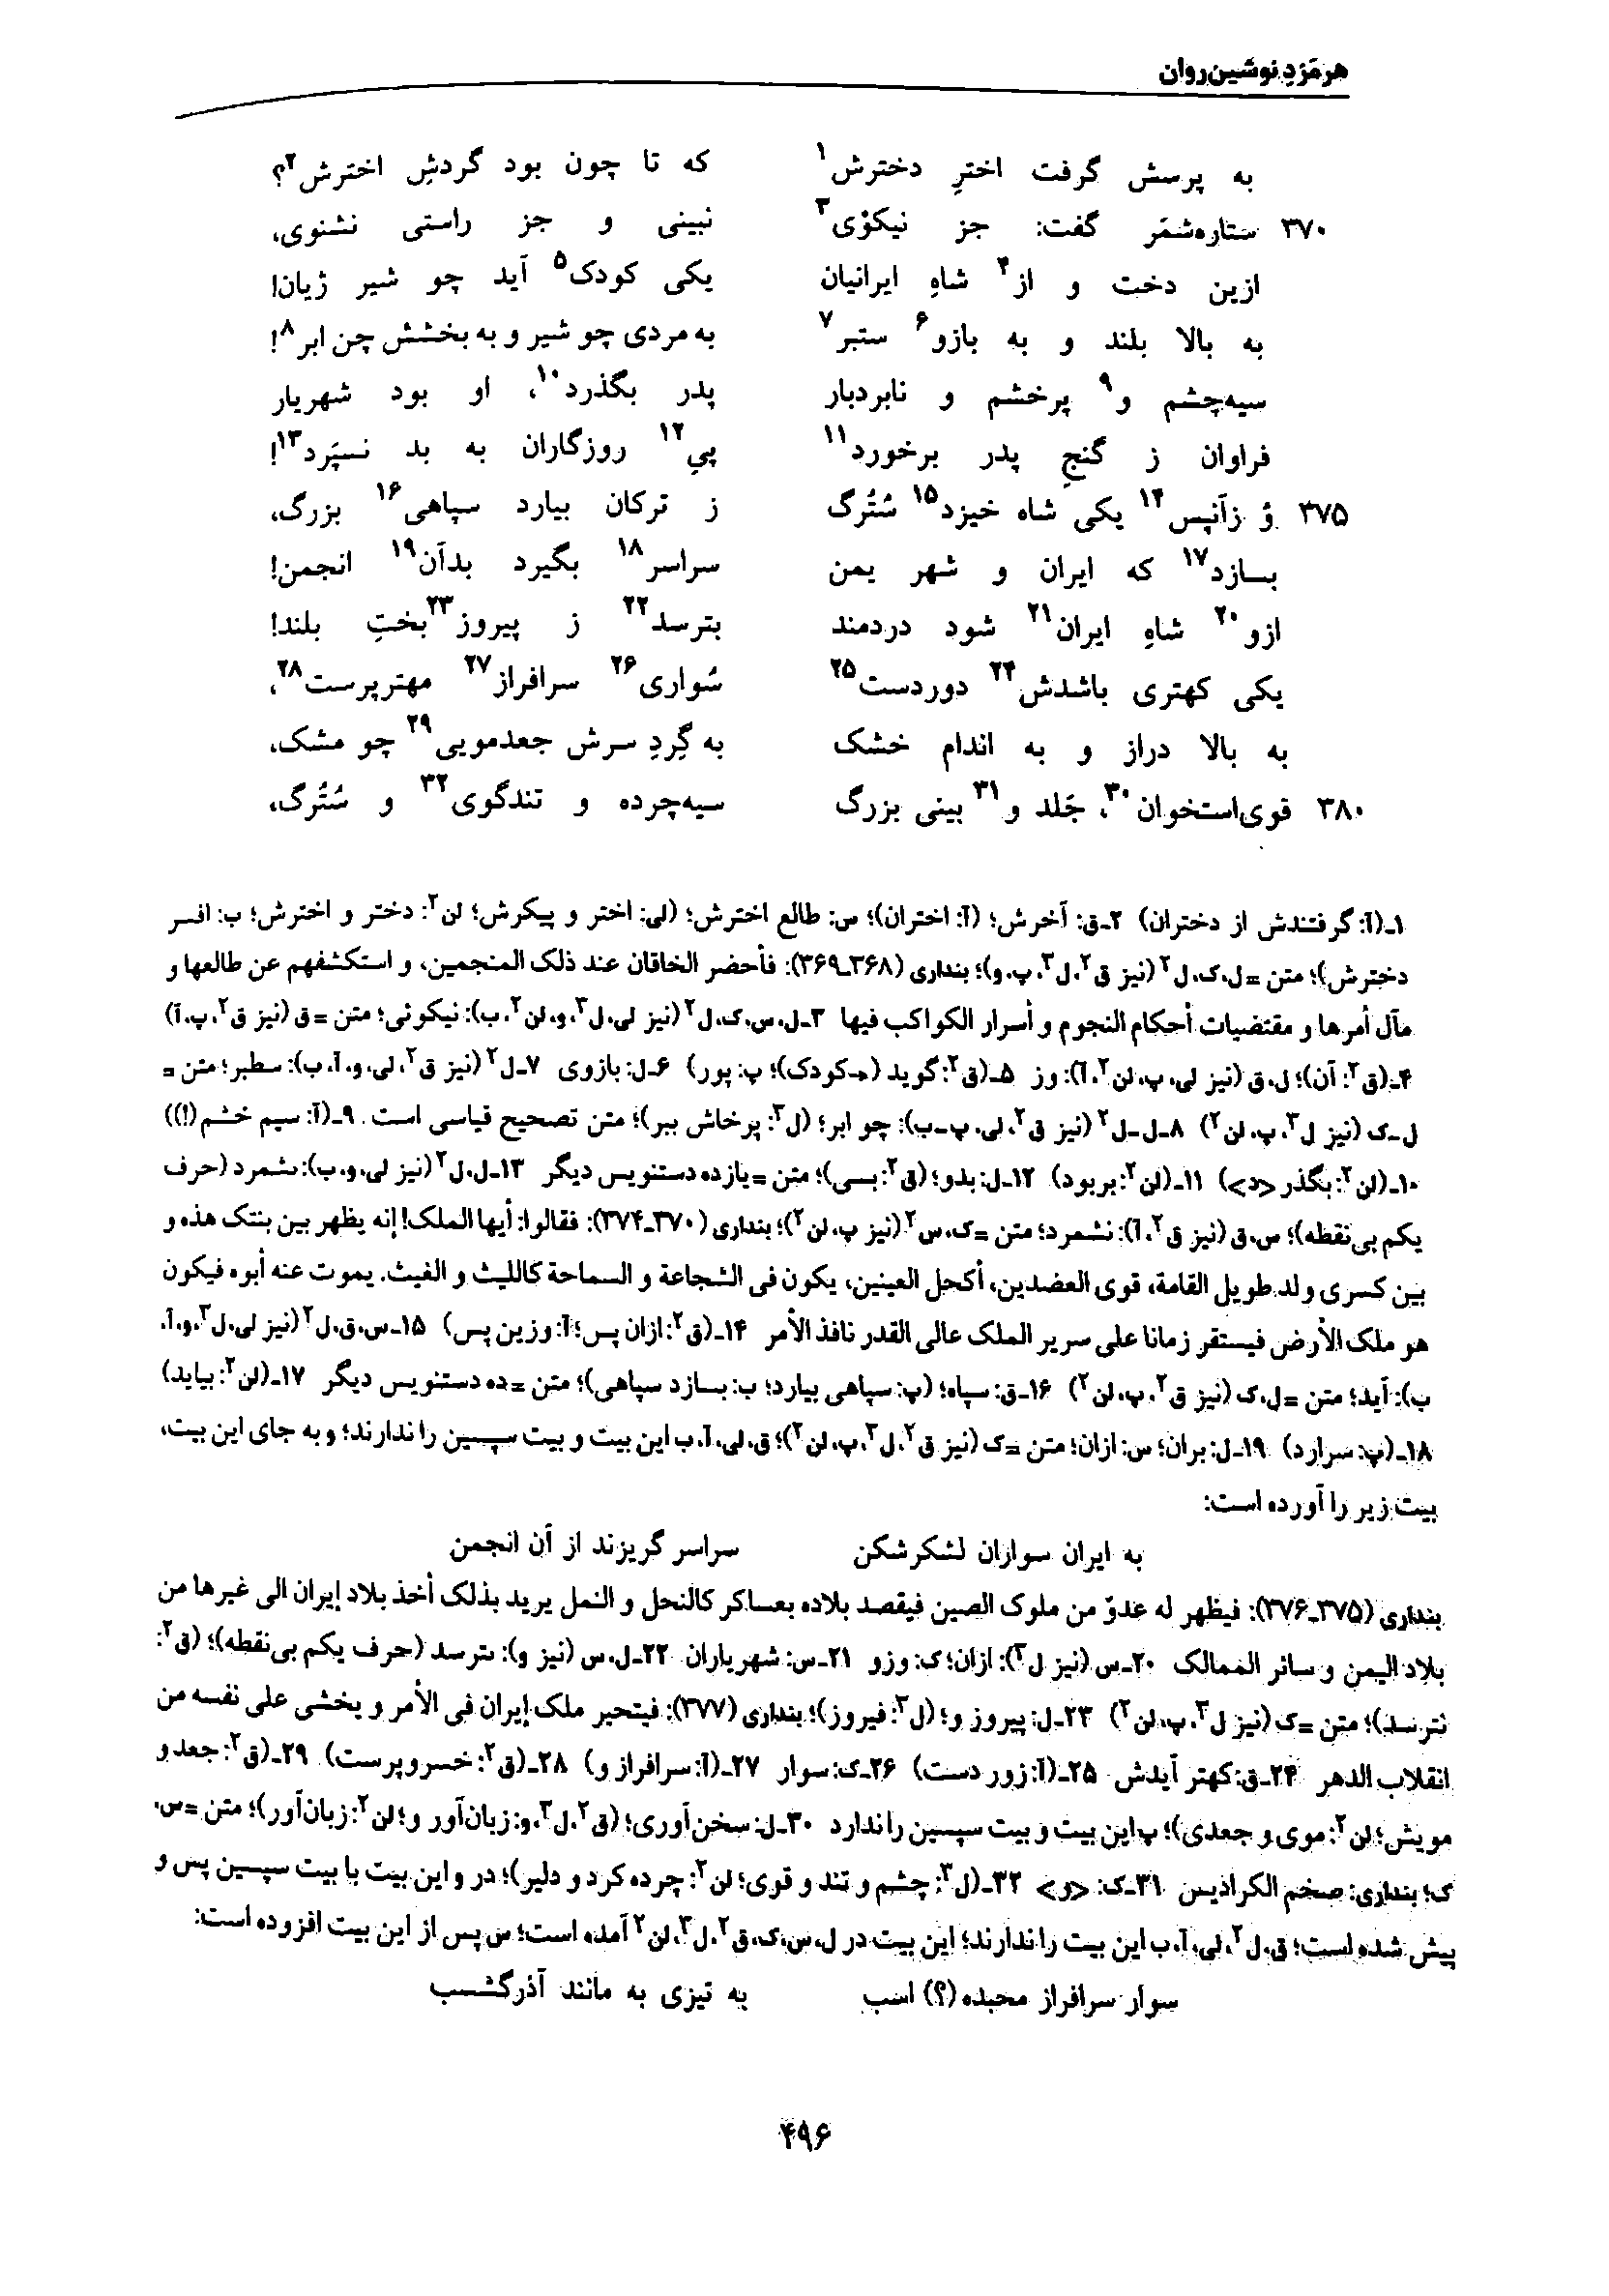 هرمزدِ نوشین‌روان
به پرسش گرفت اخترِ دخترش۱ که تا چون بود گردشِ اخترش۲؟
۳۷۰ ستاره‌شمَر گفت: جز نیکوْی۳ نبینی و جز راستی نشنوی،
ازین دخت و از۴ شاهِ ایرانیان یکی کودک۵ آید چو شیر ژیان!
به بالا بلند و به بازو۶ ستبر۷ به مردی چو شیر و به بخشش چن ابر۸!
سیه‌چشم و۹ پرخشم و نابردبار پدر بگذرد۱۰، او بود شهریار
فراوان ز گنجِ پدر برخورد۱۱ پیِ۱۲ روزگاران به بد نسپَرد۱۳!
۳۷۵ وُ زآنپس۱۴ یکی شاه خیزد۱۵ سُتُرگ ز ترکان بیارد سپاهی۱۶ بزرگ،
بسازد۱۷ که ایران و شهر یمن سراسر۱۸ بگیرد بدآن۱۹ انجمن!
ازو۲۰ شاهِ ایران۲۱ شود دردمند بترسد۲۲ ز پیروز۲۳بختِ بلند!
یکی کهتری باشدش۲۴ دوردست۲۵ سُواری۲۶ سرافراز۲۷ مهترپرست۲۸،
به بالا دراز و به اندام خشک به گِردِ سرش جعدمویی۲۹ چو مشک،
۳۸۰ قوی‌استخوان۳۰، جَلد و۳۱ بینی بزرگ سیه‌چرده و تندگوی۳۲ و سُتُرگ،
۱ـ(آ: گرفتندش از دختران) ۲ـق: آخرش؛ (آ: اختران)؛ س: طالع اخترش؛ (لی: اختر و پیکرش؛ لن۲: دختر و اخترش؛ ب: افسر
دخترش)؛ متن =ل،ک،ل۲ (نیز ق۲، ل۳، پ، و)؛ بنداری (۳۶۸ـ۳۶۹): فأحضر الخاقان عند ذلک المنجمین، و استکشفهم عن طالعها و
مآل أمرها و مقتضیات أحکام النجوم و أسرار الکواکب فیها ۳ـل،س،ک،ل۲ (نیز لی، ل۳، و، لن۲، ب): نیکوئی؛ متن =ق (نیز ق۲، پ، آ)
۴ـ(ق۲: آن)؛ ل،ق (نیز لی، پ، لن۲، آ): وز ۵ـ(ق۲: گوید (←کودک)؛ پ: پور) ۶ـل: بازوی ۷ـل۲ (نیز ق۲، لی، و، آ، ب): سطبر؛ متن =
ل‌ـ‌ک (نیز ل۳، پ، لن۲) ۸ـل‌ـ‌ل۲ (نیز ق۲، لی، پ‌ـ‌ب): چو ابر؛ (ل۳: پرخاش ببر)؛ متن تصحیح قیاسی است ۹ـ(آ: سیم خشم(!))
۱۰ـ(لن۲: بگذر<د>) ۱۱ـ(لن۲: بربود) ۱۲ـل: بدو؛ (ق۲: بسی)؛ متن =یازده دستنویس دیگر ۱۳ـل،ل۲ (نیز لی، و، ب): ٮشمرد (حرف
یکم بی‌نقطه)؛ س،ق (نیز ق۲، آ): نشمرد؛ متن =ک،س۲ (نیز پ، لن۲)؛ بنداری (۳۷۰ـ۳۷۴): فقالوا: أیها الملک! إنه یظهر بین بنتک هذه و
بین کسری ولد طویل القامة، قوی العضدین، أکحل العینین، یکون فی الشجاعة و السماحة کاللیث و الغیث. یموت عنه أبوه فیکون
هو ملک الأرض فیستقر زمانا علی سریر الملک عالی القدر نافذ الأمر ۱۴ـ(ق۲: ازان پس؛ آ: وزین پس) ۱۵ـس،ق،ل۲ (نیز لی، ل۳، و، آ،
ب): آید؛ متن =ل،ک (نیز ق۲، پ، لن۲) ۱۶ـق: سپاه؛ (پ: سپاهی بیارد؛ ب: بسازد سپاهی)؛ متن =ده دستنویس دیگر ۱۷ـ(لن۲: بیاید)
۱۸ـ(پ: سرارد) ۱۹ـل: بران؛ س: ازان؛ متن =ک (نیز ق۲، ل۳، پ، لن۲)؛ ق، لی، آ، ب این بیت و بیت سپسین را ندارند؛ و به جای این بیت،
بیت زیر را آورده است:
به ایران سواران لشکرشکن سراسر گریزند از آن انجمن
بنداری (۳۷۵ـ۳۷۶): فیظهر له عدوّ من ملوک الصین فیقصد بلاده بعساکر کالنحل و النمل یرید بذلک أخذ بلاد إیران الی غیرها من
بلاد الیمن و سائر الممالک ۲۰ـس (نیز ل۳): ازان؛ ک: وزو ۲۱ـس: شهریاران ۲۲ـل،س (نیز و): ٮترسد (حرف یکم بی‌نقطه)؛ (ق۲:
نترسد)؛ متن =ک (نیز ل۳، پ، لن۲) ۲۳ـل: پیروز و؛ (ل۳: فیروز)؛ بنداری (۳۷۷): فیتحیر ملک إیران فی الأمر و یخشی علی نفسه من
انقلاب الدهر ۲۴ـق: کهتر آیدش ۲۵ـ(آ: زور دست) ۲۶ـک: سوار ۲۷ـ(آ: سرافراز و) ۲۸ـ(ق۲: خسروپرست) ۲۹ـ(ق۲: جعد و
مویش؛ لن۲: موی و جعدی)؛ پ این بیت و بیت سپسین را ندارد ۳۰ـل: سخن‌آوری؛ (ق۲، ل۳، و: زبان‌آور و؛ لن۲: زبان‌آور)؛ متن =س،
ک؛ بنداری: ضخم الکرادیس ۳۱ـک: <و> ۳۲ـ(ل۳: چشم و تند و قوی؛ لن۲: چرده کرد و دلیر)؛ در و این بیت با بیت سپسین پس و
پیش شده است؛ ق، ل۲، لی، آ، ب این بیت را ندارند؛ این بیت در ل، س، ک، ق۲، ل۳، لن۲ آمده است؛ س پس از این بیت افزوده است:
سوار سرافراز محبده (؟) اسب به تیزی به مانند آذرگشسب
۴۹۶